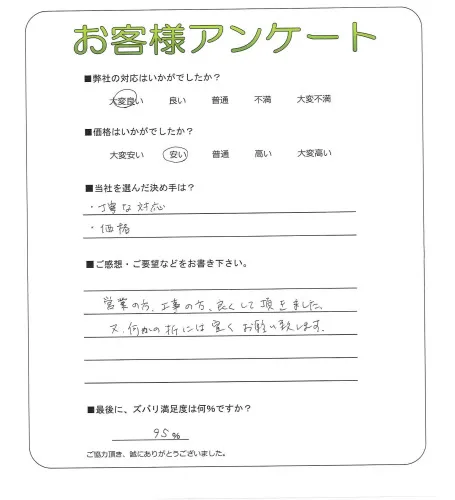 お客様アンケート
■弊社の対応はいかがでしたか？
大変良い 良い 普通 不満 大変不満
■価格はいかがでしたか？
大変安い 安い 普通 高い 大変高い
■当社を選んだ決め手は？
・丁寧な対応
・価格
■ご感想・ご要望などをお書き下さい。
営業の方、工事の方、良くして頂きました。
又、何かの折には宜くお願い致します。
■最後に、ズバリ満足度は何％ですか？
95％
ご協力頂き、誠にありがとうございました。